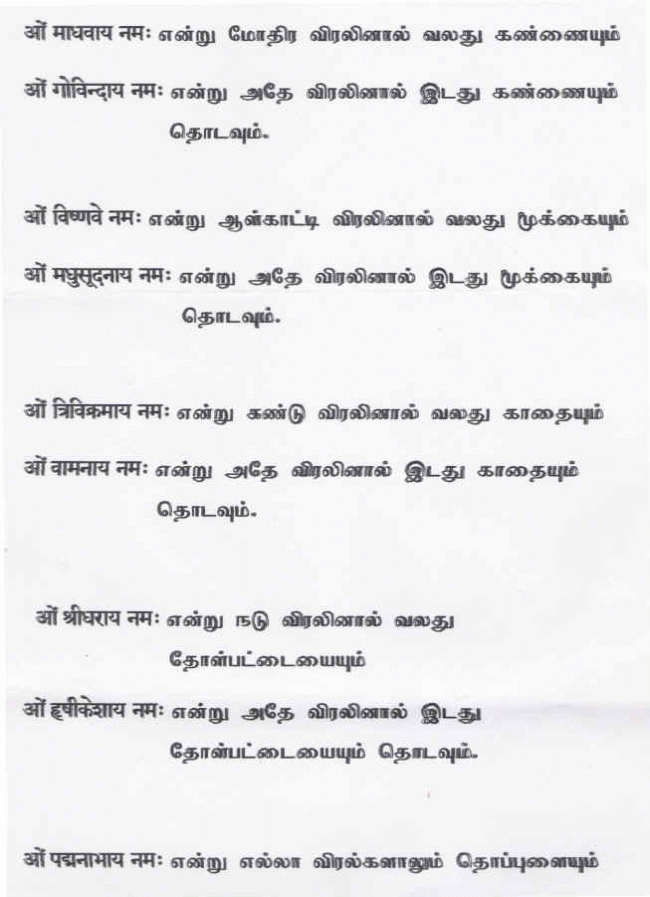 ओं माधवाय नमः என்று மோதிர விரலினால் வலது கண்ணையும்
ओं गोविन्दाय नमः என்று அதே விரலினால் இடது கண்ணையும்
தொடவும்.
ओं विष्णवे नमः என்று ஆள்காட்டி விரலினால் வலது மூக்கையும்
ओं मधुसूदनाय नमः என்று அதே விரலினால் இடது மூக்கையும்
தொடவும்.
ओं त्रिविक्रमाय नमः என்று சுண்டு விரலினால் வலது காதையும்
ओं वामनाय नमः என்று அதே விரலினால் இடது காதையும்
தொடவும்.
ओं श्रीधराय नमः என்று நடு விரலினால் வலது
தோள்பட்டையையும்
ओं हृषीकेशाय नमः என்று அதே விரலினால் இடது
தோள்பட்டையையும் தொடவும்.
ओं पद्मनाभाय नमः என்று எல்லா விரல்களாலும் தொப்புளையும்